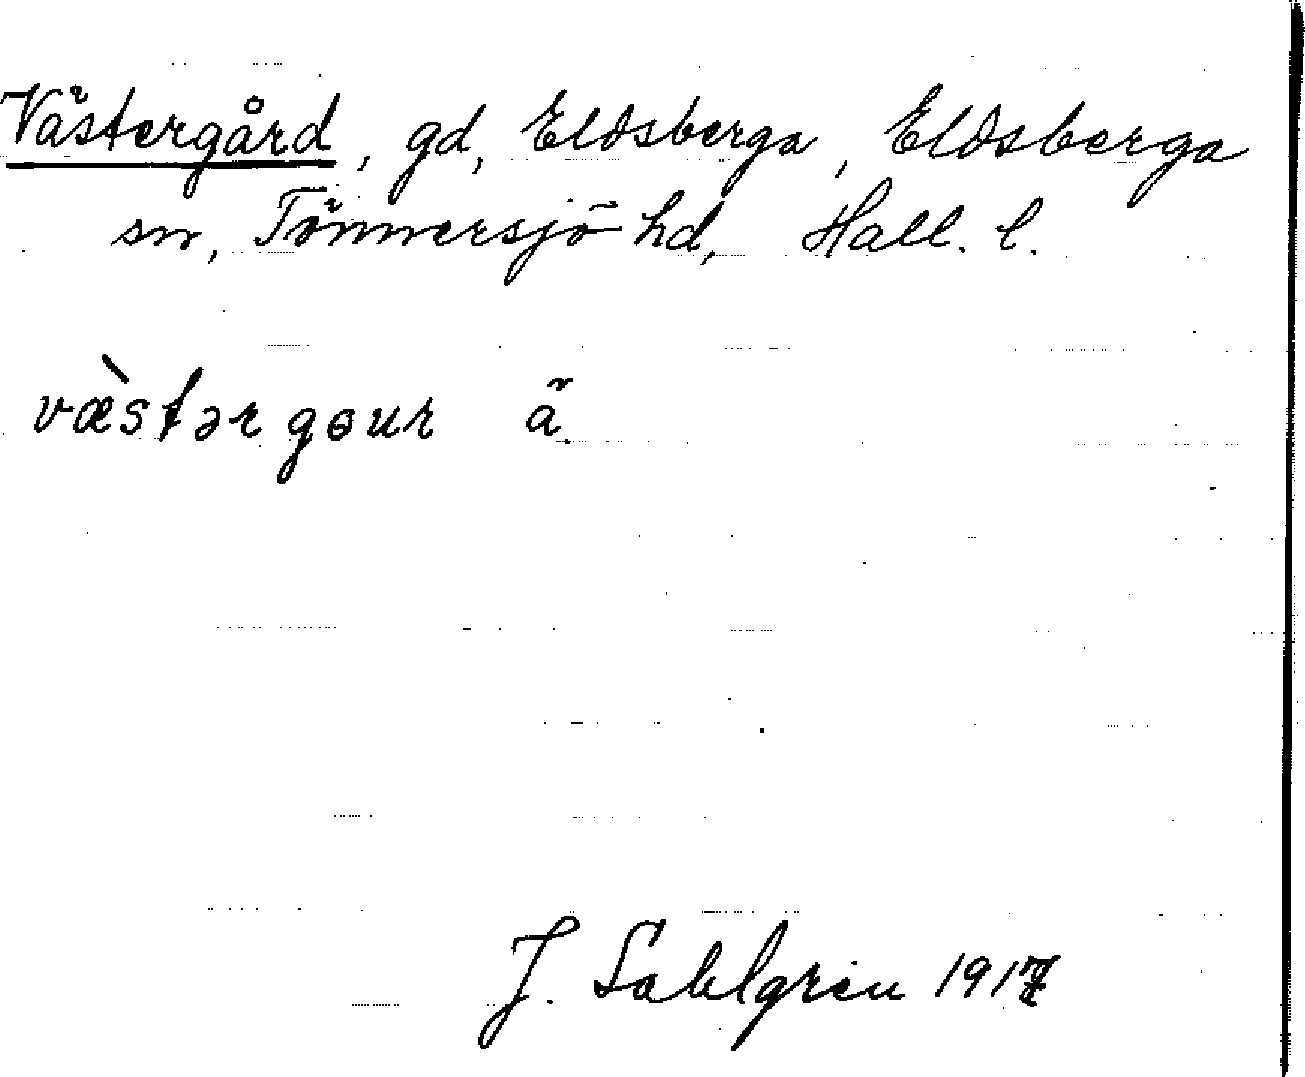 Västergård, gd, Eldsberga, Eldsberga
sn, Tönnersjö hd, Hall. l.
væ̀stərgɵur ä.
J. Sahlgren 1917